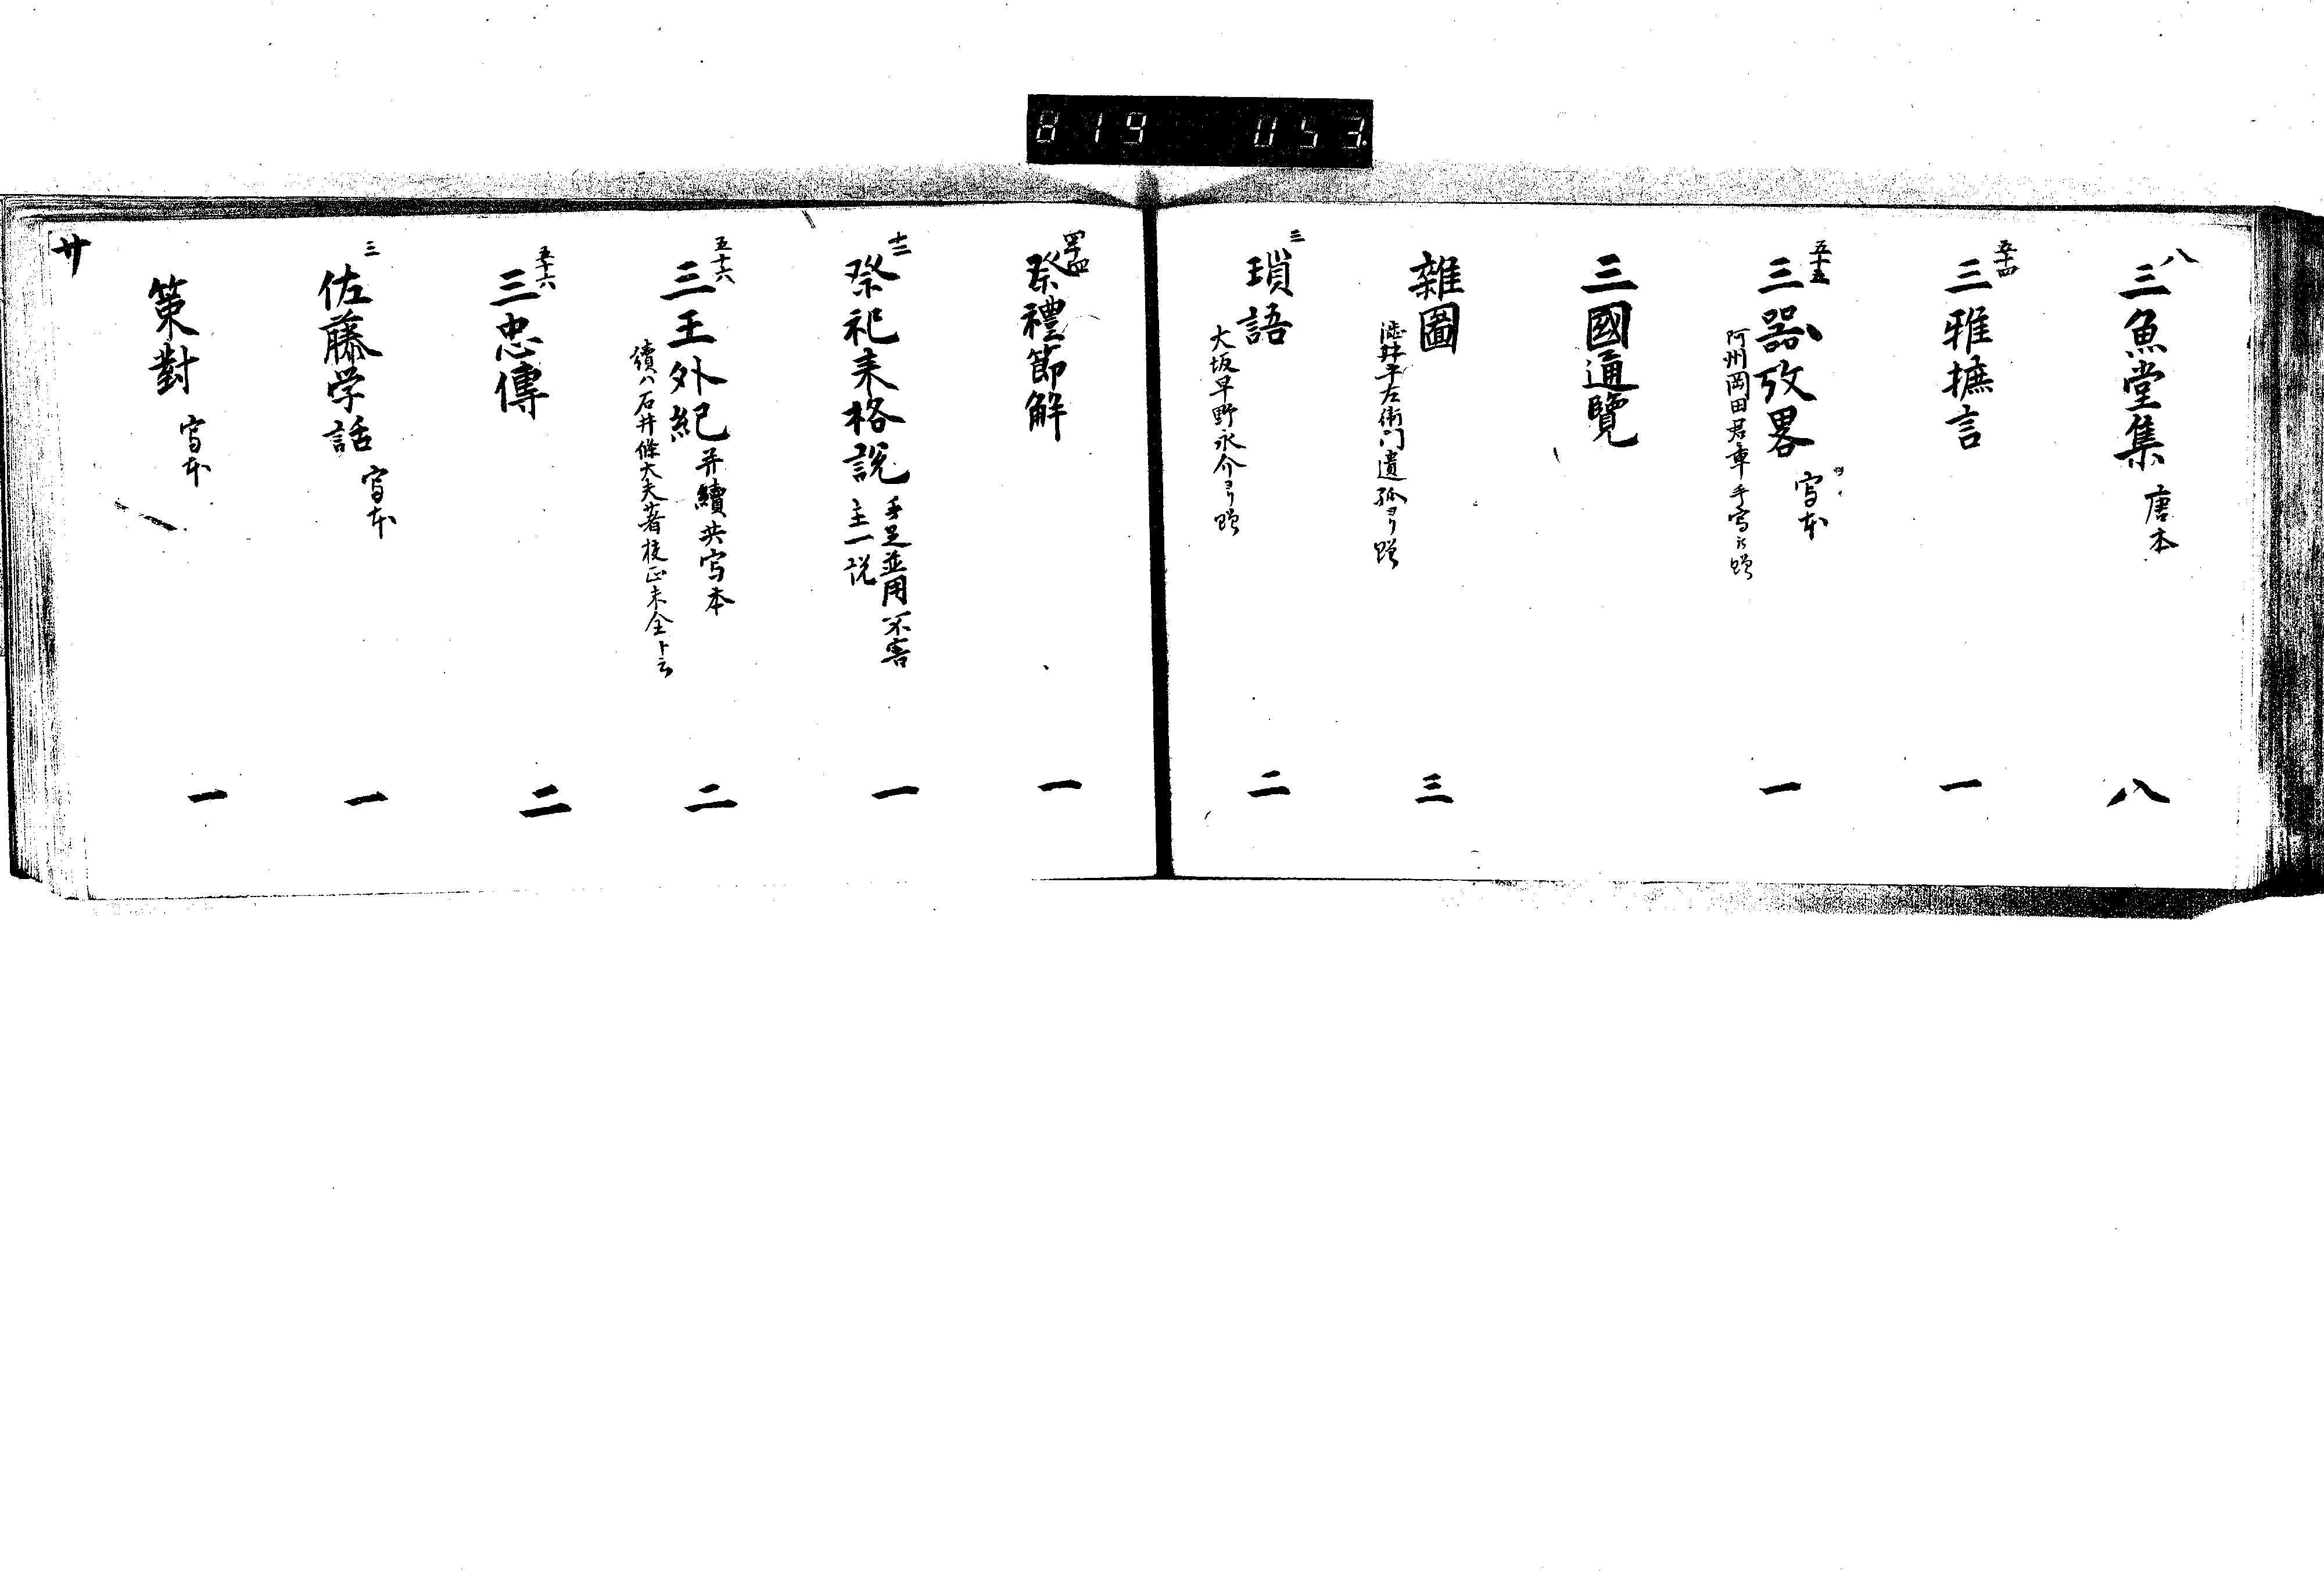 819 053.
八
三魚堂集 唐本 八
五十四
三雅摭言 一
五十五
三器攷畧 写本 一
阿州岡田君車手写ニ而贈
三國通覽
雜圖 三
澁井平左衛門遺孤ヨリ贈
三
瑣語 二
大坂早野永介ヨリ贈
祭禮節解 一
十三
祭祀来格説 手足並用不害
主一説 一
五十六
三王外紀 并續共写本 二
續ハ石井條大夫著校正未全ト云
五十六
三忠傳 二
三
佐藤学話 写本 一
策對 写本 一
廿